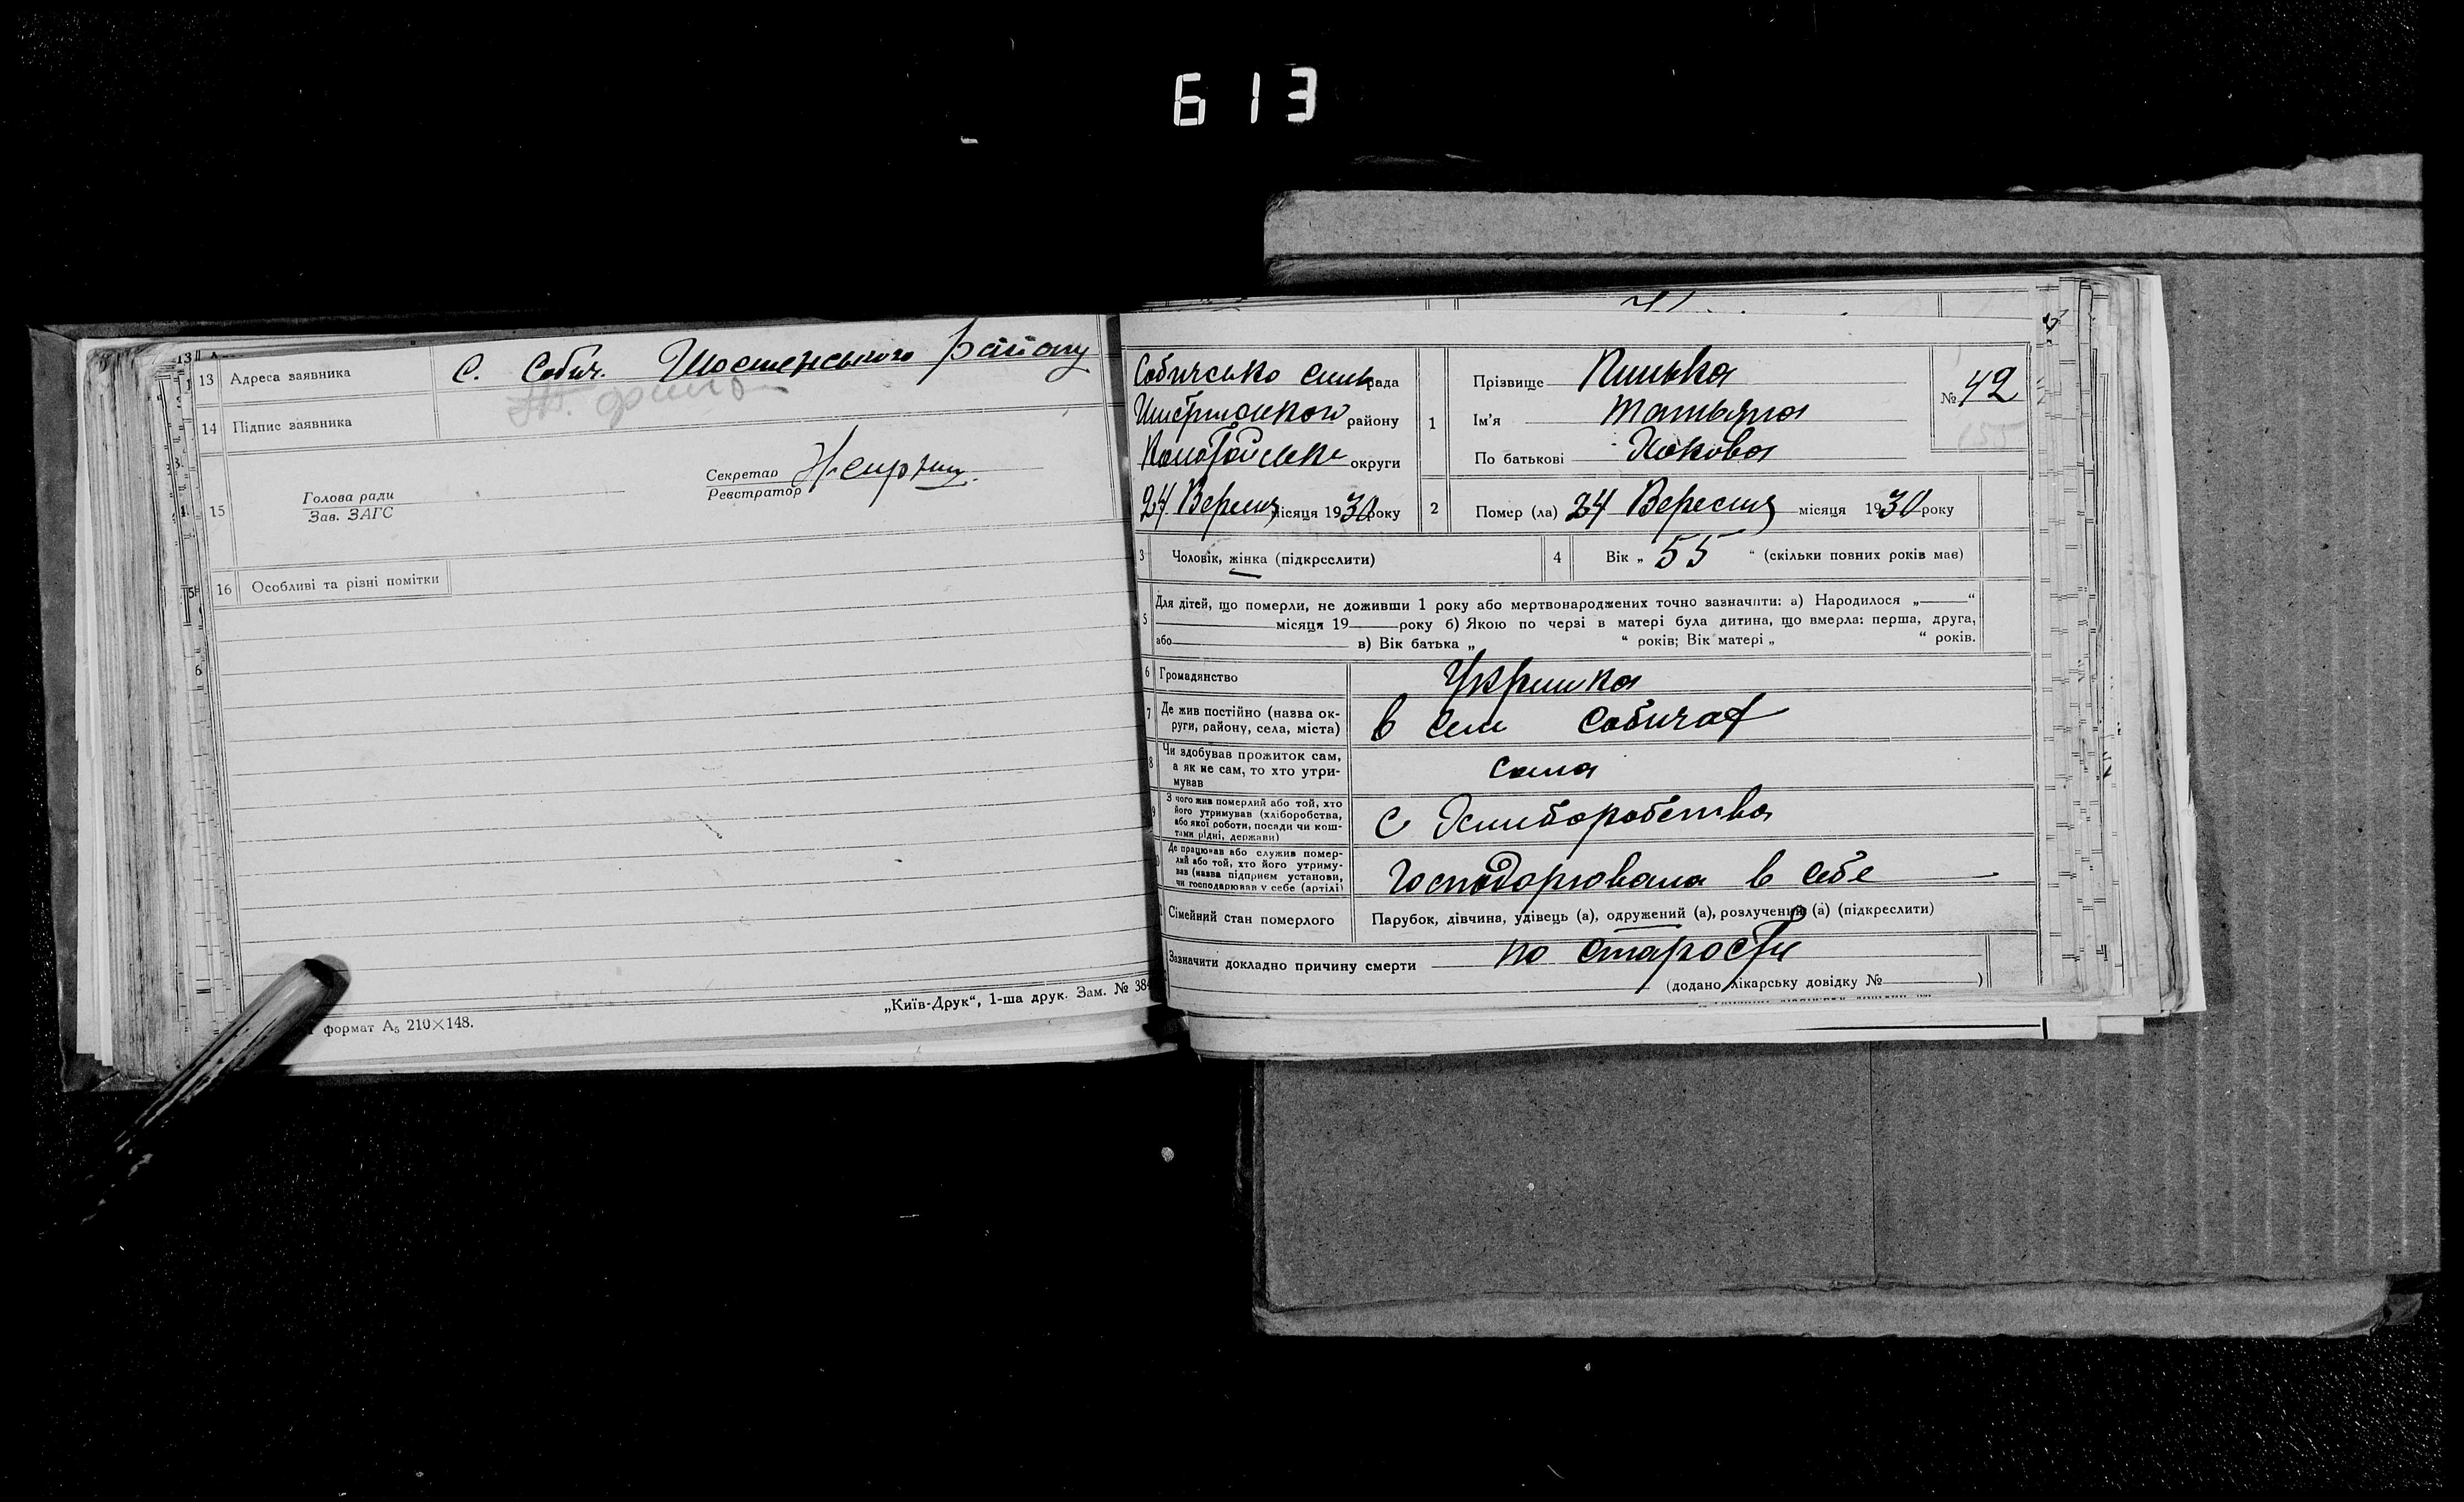 613
13 Адреса заявника С. Собич. Шостенського району
14 Підпис заявника
15 Голова ради
Зав. ЗАГС
Секретар
Реєстратор
16 Особливі та різні помітки
„Київ-Друк“, 1-ша друк. Зам. № 38
формат А5 210×148.
Собичсько рада
району
округи
24 Вересня місяця 1930 року
1 Прізвище
Ім'я Татьяна
По батькові
№ 42
155
2 Помер (ла) 24 Вересня місяця 1930 року
3 Чоловік, жінка (підкреслити)
4 Вік „ 55 “ (скільки повних років має)
5 Для дітей, що померли, не доживши 1 року або мертвонароджених точно зазначити: а) Народилося „ “
місяця 19 року б) Якою по черзі в матері була дитина, що вмерла: перша, друга,
або в) Вік батька „ “ років; Вік матері „ “ років.
6 Громадянство Укрїнка
7 Де жив постійно (назва ок-
руги, району, села, міста) в селі Собичах
8 Чи здобував прожиток сам,
а як не сам, то хто утри-
мував сама
9 З чого жив померлий або той, хто
його утримував (хліборобства,
або якої роботи, посади чи кош-
тами рідні, держави) с Хліборобства
Де працював або служив помер-
лий або той, хто його утриму-
вав (назва підприєм установи,
чи господарював у себе (артілі) Господорювала в себе
Сімейний стан померлого Парубок, дівчина, удівець (а), одружений (а), розлучений (а) (підкреслити)
Зазначити докладно причину смерти по старости
(додано лікарську довідку № )